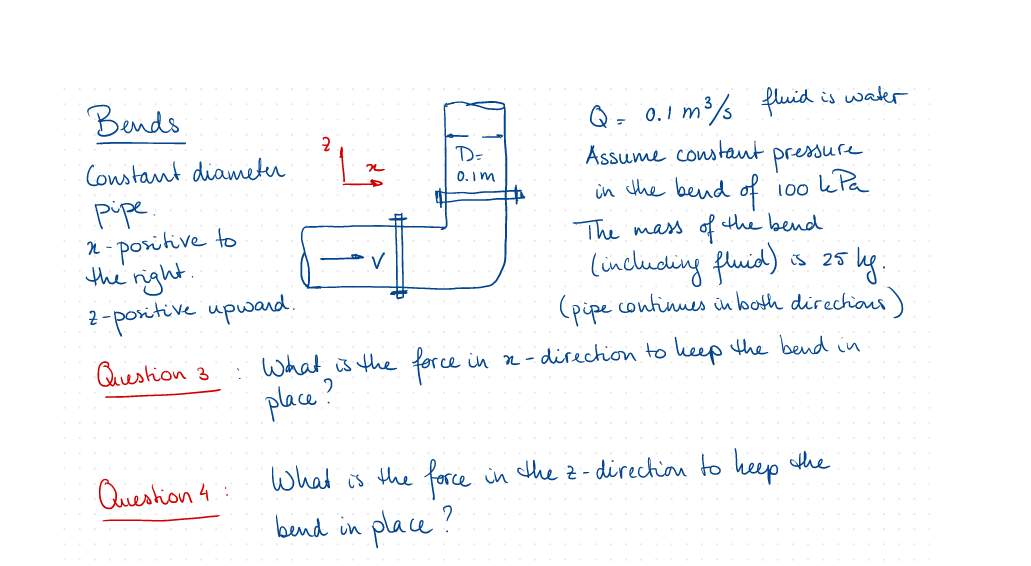 Bends
Constant diameter
pipe.
x-positive to
the right.
z-positive upward.
z
x
D=
0.1m
V
Q = 0.1 m³/s fluid is water
Assume constant pressure
in the bend of 100 kPa
The mass of the bend
(including fluid) is 25 kg.
(pipe continues in both directions)
Question 3 : What is the force in x-direction to keep the bend in
place?
Question 4 : What is the force in the z-direction to keep the
bend in place?